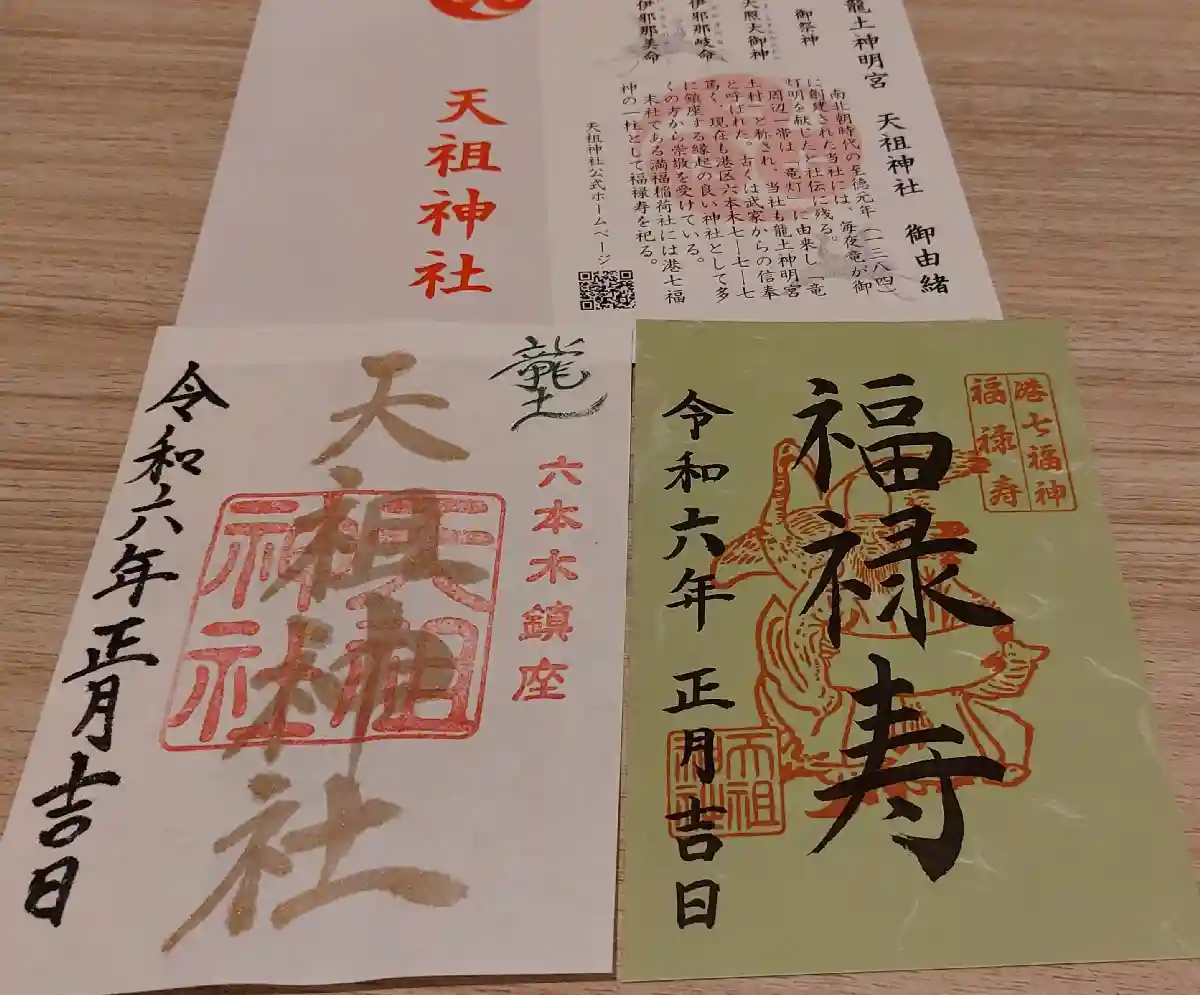 天祖神社
龍土神明宮 天祖神社 御由緒
御祭神
天照大御神
伊邪那岐命
伊邪那美命
南北朝時代の至徳元年(一三八四)
に創建された当社には、毎夜竜が御
灯明を献じたと社伝に残る。
周辺一帯は「竜灯」に由来し「竜
土村」と称され、当社も龍土神明宮
と呼ばれた。古くは武家からの信奉
篤く、現在も港区六本木七ー七ー七
に鎮座する縁起の良い神社として多
くの方から崇敬を受けている。
末社である満福稲荷社には港七福
神の一柱として福禄寿を祀る。
天祖神社公式ホームページ
龍土
六本木鎮座
天祖神社
天祖神社
令和六年正月吉日
港七福神
福禄寿
福禄寿
天祖神社
令和六年 正月吉日